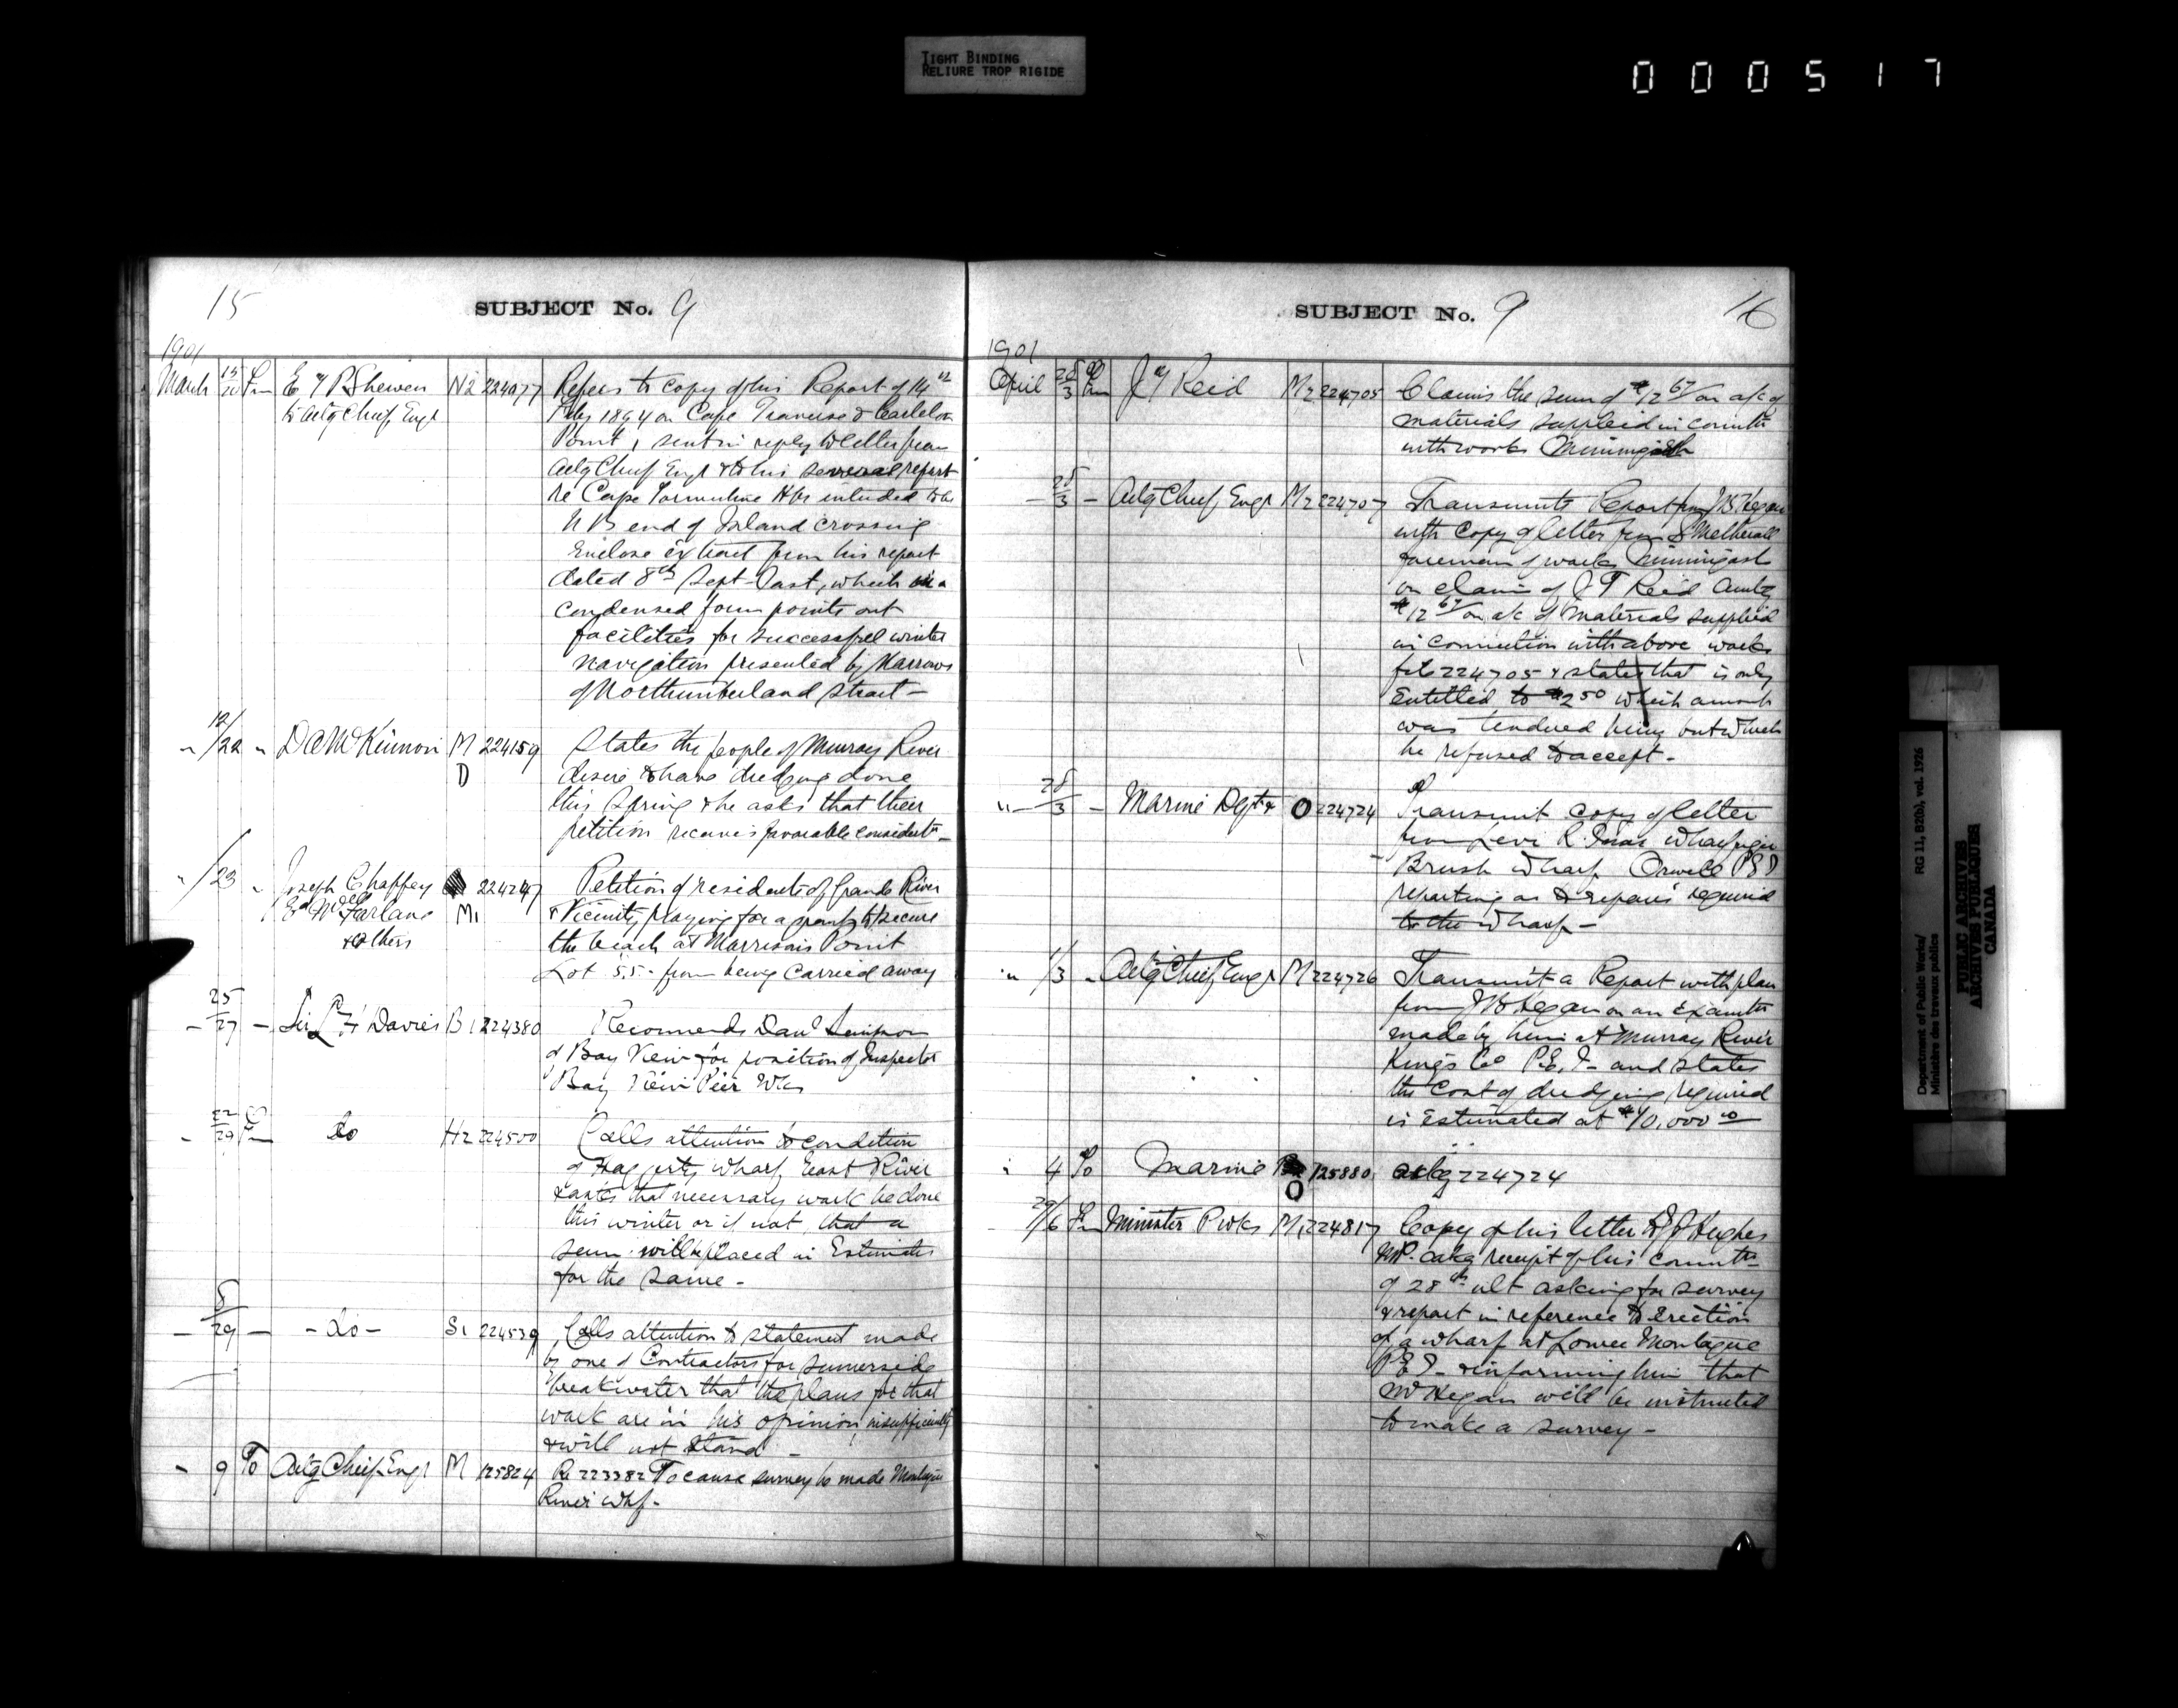 TIGHT BINDING
RELIURE TROP RIGIDE
000517
15
SUBJECT No. 9
1901
March 15/20 Fm E T P Shewen N2 224077 Refers to copy of his Report of 14th
to Actg Chief Engr Feby 1894 on Cape Traverse & Carleton
Point, sent in reply to letter from
Actg Chief Engr & to his several report
re Cape Tormentine Hbr intended to be
N B end of Island crossing
Enclose extract from his report
dated 8th Sept last, which in a
condensed form points out
facilities for successful winter
navigation presented by Narrows
of Northumberland Strait -
" 12/22 " D A McKinnon M 224159 States the people of Murray River
D desire to have dredging done
this spring & he asks that their
petition receives favorable considertn -
" /23 " Joseph Chaffey 224247 Petition of residents of Grande River
McFarlane M1 & Vicinity praying for a grant to secure
& Others the beach at Morrisons Point
Lot 55 - from being carried away
- 25/27 - Sir L H Davies B1 224380 Recommends Danl Simpson
of Bay View for position of Inspector
Bay View Pier Wks
- 22/29 Fm Do H2 224500 Calls attention to condition
of Haggertys wharf, East River
& asks that necessary work be done
this winter or if not, that a
sum will be placed in Estimates
for the same -
- 8/29 - - Do - S1 224539 Calls attention to statement made
by one of Contractors for Summerside
breakwater that the plans for that
work are in his opinion, insufficient
& will not stand -
- 9 To Actg Chief Engr M 125824 Re 223382 To cause survey to be made Montague
River Whf -
SUBJECT No. 9
16
1901
April 28/3 Fm J T Reid M2 224705 Claims the sum of $12 67/ on a/c of
materials supplied in connectn
with works Miminigash
- 28/3 - Actg Chief Engr M2 224707 Transmits Report from J B Hegan
with copy of letter from S Metherall
foreman of works Miminigash
on claim of J T Reid amtg
$12 67/ on a/c of materials supplied
in connection with above works
224705 & states that is only
Entitled to $2 50 which amount
was tendered him but which
he refused to accept -
" 28/3 - Marine Dept O 224724 Transmit copy of letter
from Levi R. wharfinger
Brush Wharf Orwell P E I
reporting as to repairs required
to the wharf -
" 1/3 - Actg Chief Engr M 224726 Transmit a Report with plan
from J B Hegan on an Examtn
made by him at Murray River
Kings Co P.E.I - and states
the cost of dredging required
is Estimated at $10,000 00
" 4 To Marine O 125880 ackg 224724
29/6 Fm Minister P Wks M1 224817 Copy of his letter to J J Hughes
M.P. ackg receipt of his commtn
of 28th ult asking for survey
& report in reference to Erection
of a wharf at Lower Montague
P E I - & informing him that
Mr Hegan will be instructed
to make a survey -
Department of Public Works/
Ministère des travaux publics
RG 11, B2(b), vol. 1926
PUBLIC ARCHIVES
ARCHIVES PUBLIQUES
CANADA